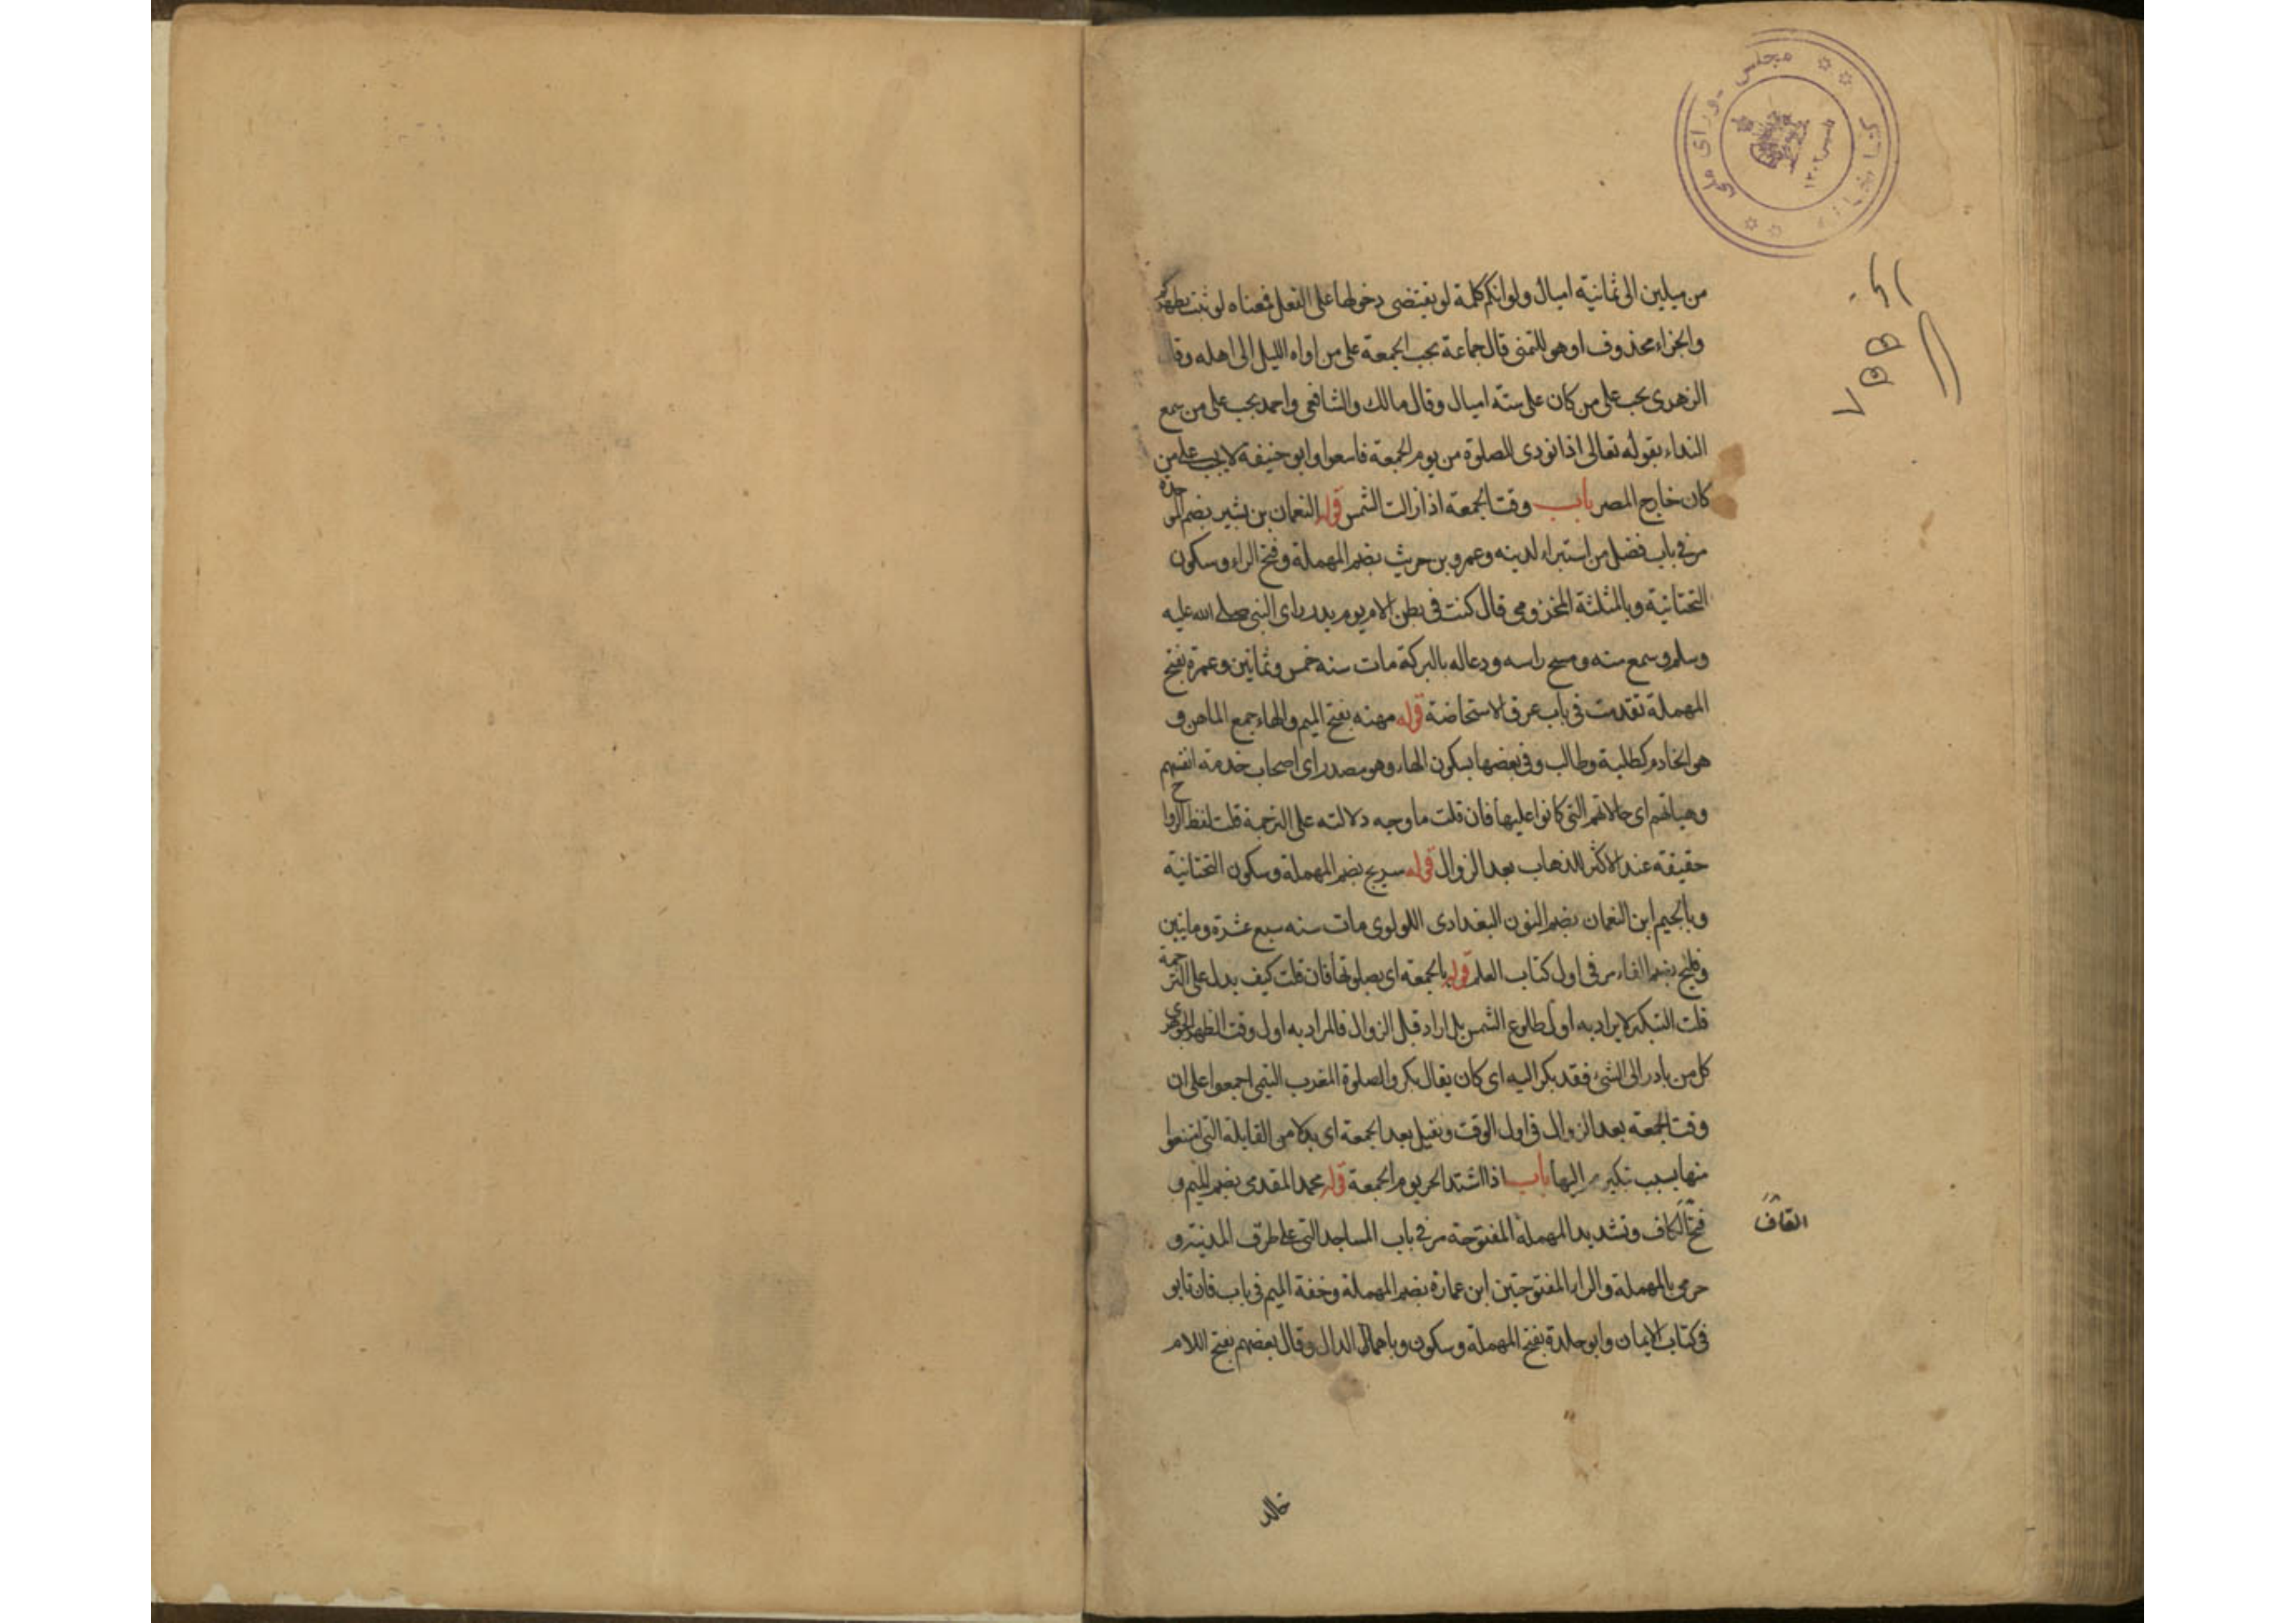 مجلس شورای ملی
کتابخانه
تاسیس ۱۳۰۲
من ميلين الى ثمانية اميال ولو انكم كلمة لو يقتضى دخولها على الفعل فمعناه لو ثبت تطهركم
والجزاء محذوف او هو للتمنى قال جماعة يجب الجمعة على من اواه الليل الى اهله وقال
الزهرى يجب على من كان على ستة اميال وقال مالك والشافعى واحمد يجب على من سمع
النداء بقوله تعالى اذا نودى للصلوة من يوم الجمعة فاسعوا وابو حنيفة لا يجب على من
كان خارج المصر باب وقت الجمعة اذا زالت الشمس قوله النعمان بن بشير بضم الموحدة
مر فى باب فضل من استبراء لدينه وعمرو بن حريث بضم المهملة وفتح الراء وسكون
التحتانية وبالمثلثة المخزومى قال كنت فى بطن الام يوم بدر راى النبى صلى الله عليه
وسلم وسمع منه ومسح راسه ودعا له بالبركة مات سنه خمس وثمانين وعمرة بفتح
المهملة تقدمت فى باب عرق الاستحاضة قوله مهنه بفتح الميم والهاء جمع الماهن و
هو الخادم كطلبة وطالب وفى بعضها بسكون الهاء وهو مصدر اى اصحاب خدمة انفسهم
وهياتهم اى حالاتهم التى كانوا عليها فان قلت ما وجه دلالته على الترجمة قلت لفظ الرواح
حقيقة عند الاكثر للذهاب بعد الزوال قوله سريج بضم المهملة وسكون التحتانية
وبالجيم ابن النعمان بضم النون البغدادى اللولوى مات سنه سبع عشرة ومايتين
وفليح بضم الفاء مر فى اول كتاب العلم قوله بالجمعة اى بصلوتها فان قلت كيف يدل على الترجمة
قلت التبكير لا يراد به اول طلوع الشمس بل اراد قبل الزوال فالمراد به اول وقت الظهر الجوهرى
كل من بادر الى الشىء فقد بكر اليه اى كان يقال بكروا لصلوة المغرب التيمى اجمعوا على ان
وقت الجمعة بعد الزوال فى اول الوقت ونقيل بعد الجمعة اى بدلا من القايلة التى امتنعوا
منها بسبب تبكيرهم اليها باب اذا اشتد الحر يوم الجمعة قوله محمد المقدمى بضم الميم و
فتح الكاف وتشديد المهملة المفتوحة مر فى باب المساجد التى على طرق المدينة و
القاف
حرمى بالمهملة والراء المفتوحتين ابن عمارة بضم المهملة وخفة الميم فى باب فان تابو
فى كتاب الايمان وابو خلدة بفتح المهملة وسكون وباهمال الدال وقال بعضهم بفتح اللام
خالد